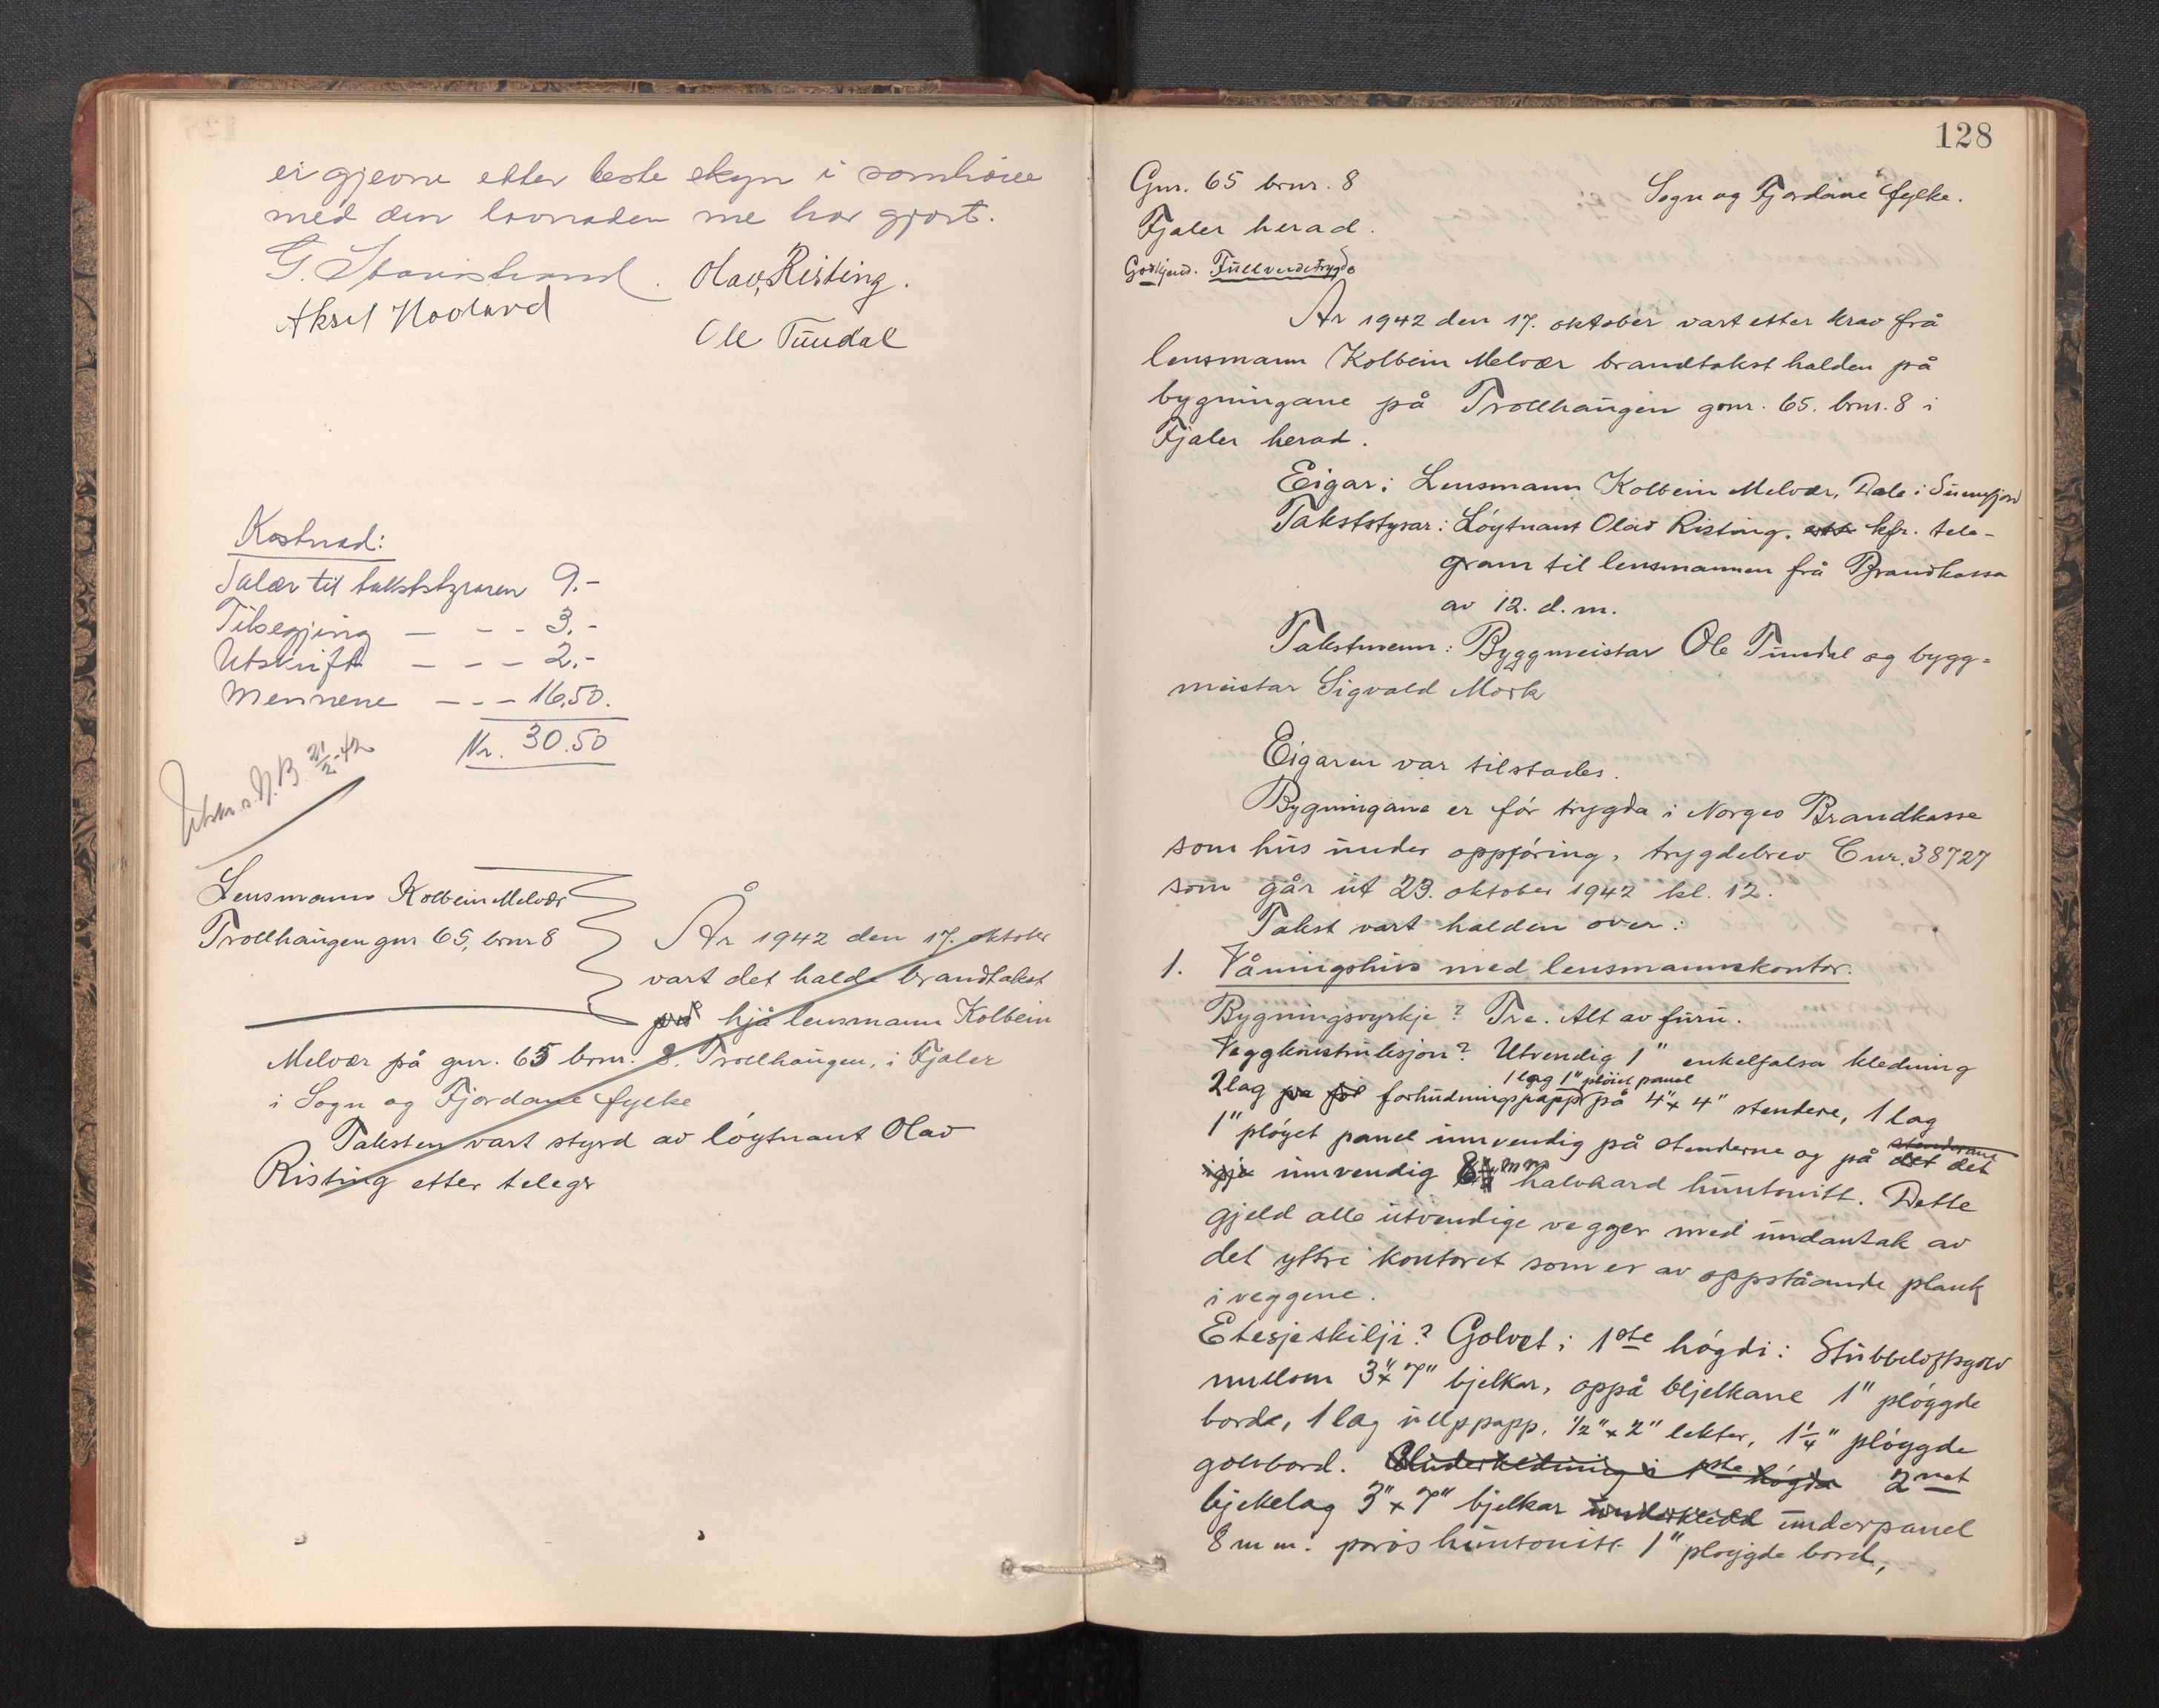 er gjevne etter beste skyn i samhøve
med den lovnaden me har gjort.
Olav Risting.
Aksel
Ole Tundal
Kostnad:
Salær til takststyraren 9.-
Tilsegjing — - - 3.-
Utskrift — - - 2.-
Mennene — - - 16,50.
Kr. 30.50
21/2-42
Lensmann Kolbein Melvær
Trollhaugen gnr 65, brnr 8
År 1942 den 17. oktober
vart det halde brandtakst
hjå lensmann Kolbein
Melvær på gnr. 65 brnr. 8. Trollhaugen, i Fjaler
i Sogn og Fjordane fylke
Taksten vart styrd av løytnant Olav
Risting etter telegr
128
Gnr. 65 brnr. 8
Sogn og Fjordane fylke.
Fjaler herad.
Godkjend. Fullverdetrygd
År 1942 den 17. oktober vart etter krav frå
lensmann Kolbein Melvær brandtakst halden på
bygningane på Trollhaugen gnr. 65. brnr. 8 i
Fjaler herad.
Eigar: Lensmann Kolbein Melvær, Dale i Sunnfjord
Takststyrar: Løytnant Olav Risting. kfr. tele-
gram til lensmannen frå Brandkassa
av 12. d. m.
Takstmenn: Byggmeistar Ole Tundal og bygg=
meistar Sigvald Mork
Eigaren var tilstades.
Bygningane er før trygda i Norges Brandkasse
som hus under oppføring, trygdebrev C nr. 38727
som går ut 23. oktober 1942 kl. 12.
Takst vart halden over:
1. Våningshus med lensmannskontor.
Bygningsvyrkje? Tre. Alt av furu.
Veggkonstruksjon? Utvendig 1" enkelfalsa kledning
1 lag 1" pløiet panel
2 lag forhudningspapp på 4"x 4" stendere, 1 lag
1" pløyet panel innvendig på stenderne og på det
innvendig 8 mm halvhard huntonitt. Dette
gjeld alle utvendige vegger med undantak av
det yttre kontoret som er av oppståande plank
i veggene.
Etasjeskilji? Golvet i 1ste høgdi: Stubbeloftsgolv
millom 3"x 7" bjelkar, oppå bjelkane 1" pløggde
bord, 1 lag ullpapp, 1/2"x 2" lekter, 1 1/4" pløggde
golvbord. 2net
bjekelag 3"x 7" bjelkar underpanel
8 m m. porøs huntonitt 1" pløygde bord,